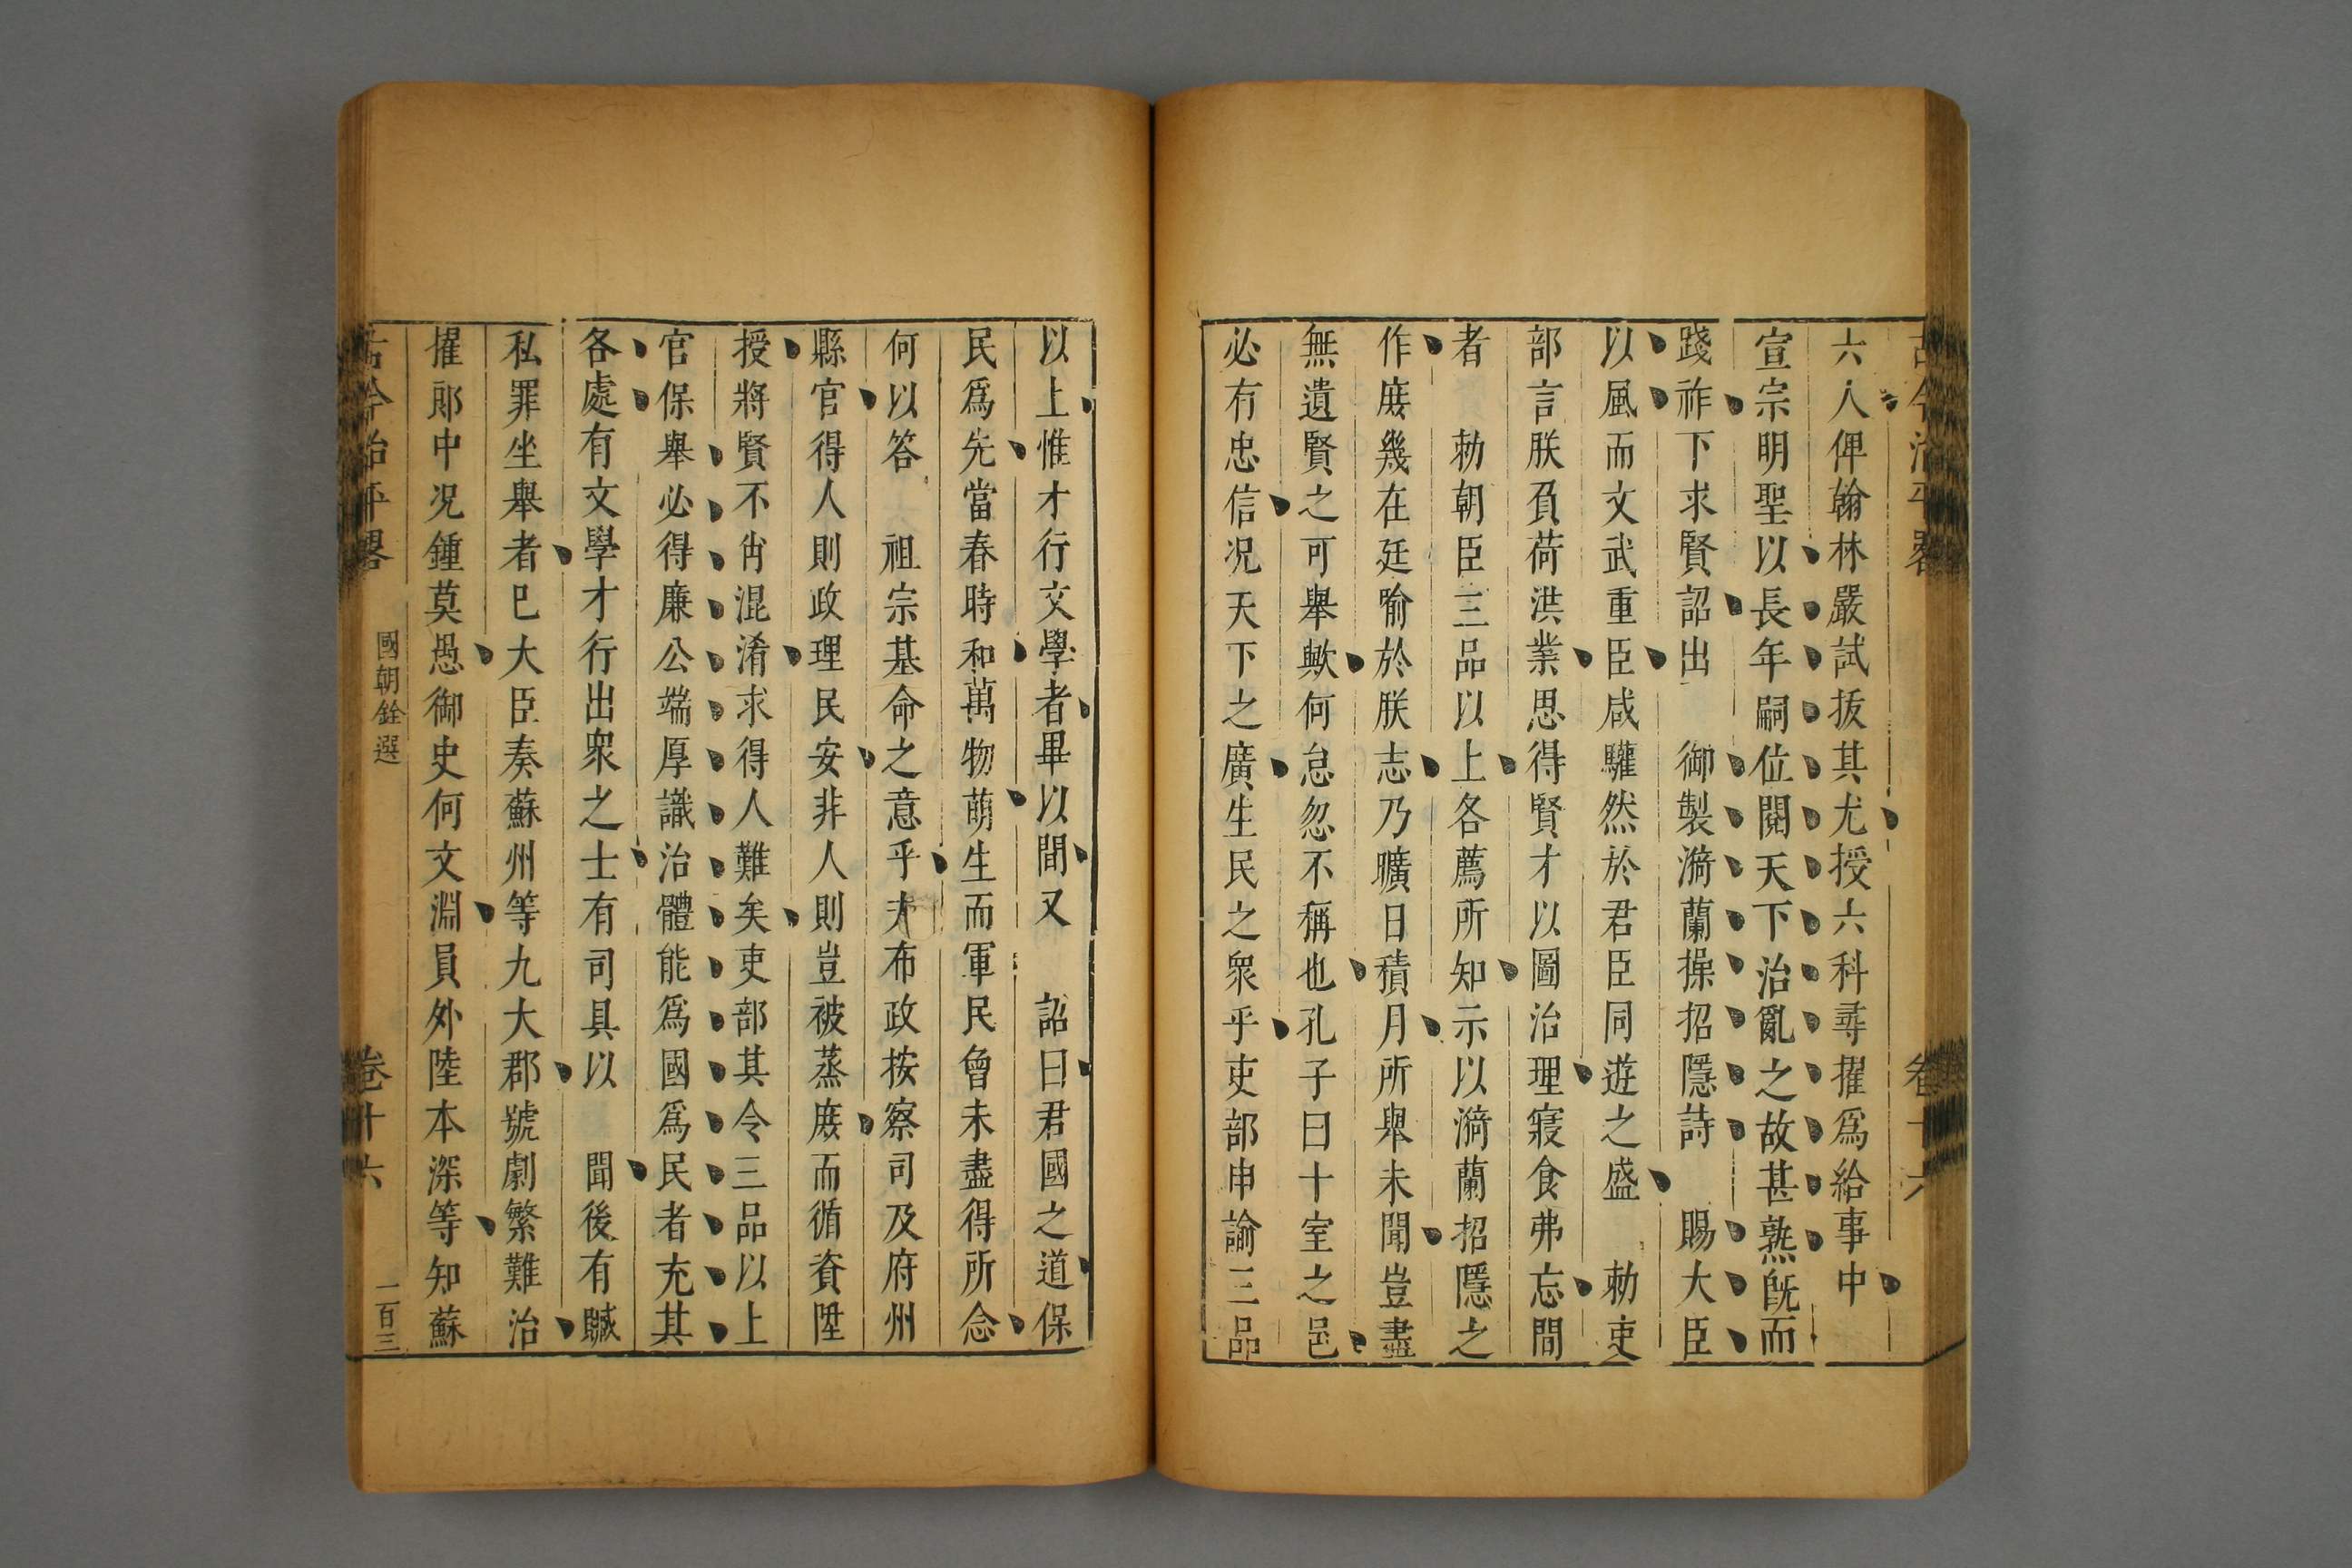 古今治平畧 卷十六
六人俾翰林嚴試拔其尤授六科尋擢爲給事中
宣宗明聖以長年嗣位閱天下治亂之故甚熟旣而
踐祚下求賢詔出 御製漪蘭操招隱詩 賜大臣
以風而文武重臣咸驩然於君臣同遊之盛 勑吏
部言朕負荷洪業思得賢才以圖治理寢食弗忘間
者 勑朝臣三品以上各薦所知示以漪蘭招隱之
作庶幾在廷喻於朕志乃曠日積月所舉未聞豈盡
無遺賢之可舉歟何怠忽不稱也孔子曰十室之邑
必有忠信况天下之廣生民之衆乎吏部申諭三品
以上惟才行文學者畢以聞又 詔曰君國之道保
民爲先當春時和萬物萌生而軍民曾未盡得所念
何以答 祖宗基命之意乎夫布政按察司及府州
縣官得人則政理民安非人則豈被蒸庶而循資陞
授將賢不肖混淆求得人難矣吏部其令三品以上
官保舉必得廉公端厚識治體能爲國爲民者充其
各處有文學才行出衆之士有司具以 聞後有贓
私罪坐舉者巳大臣奏蘇州等九大郡號劇繁難治
擢郎中况鍾莫愚御史何文淵員外陸本深等知蘇
古今治平畧 國朝銓選 卷十六 一百三